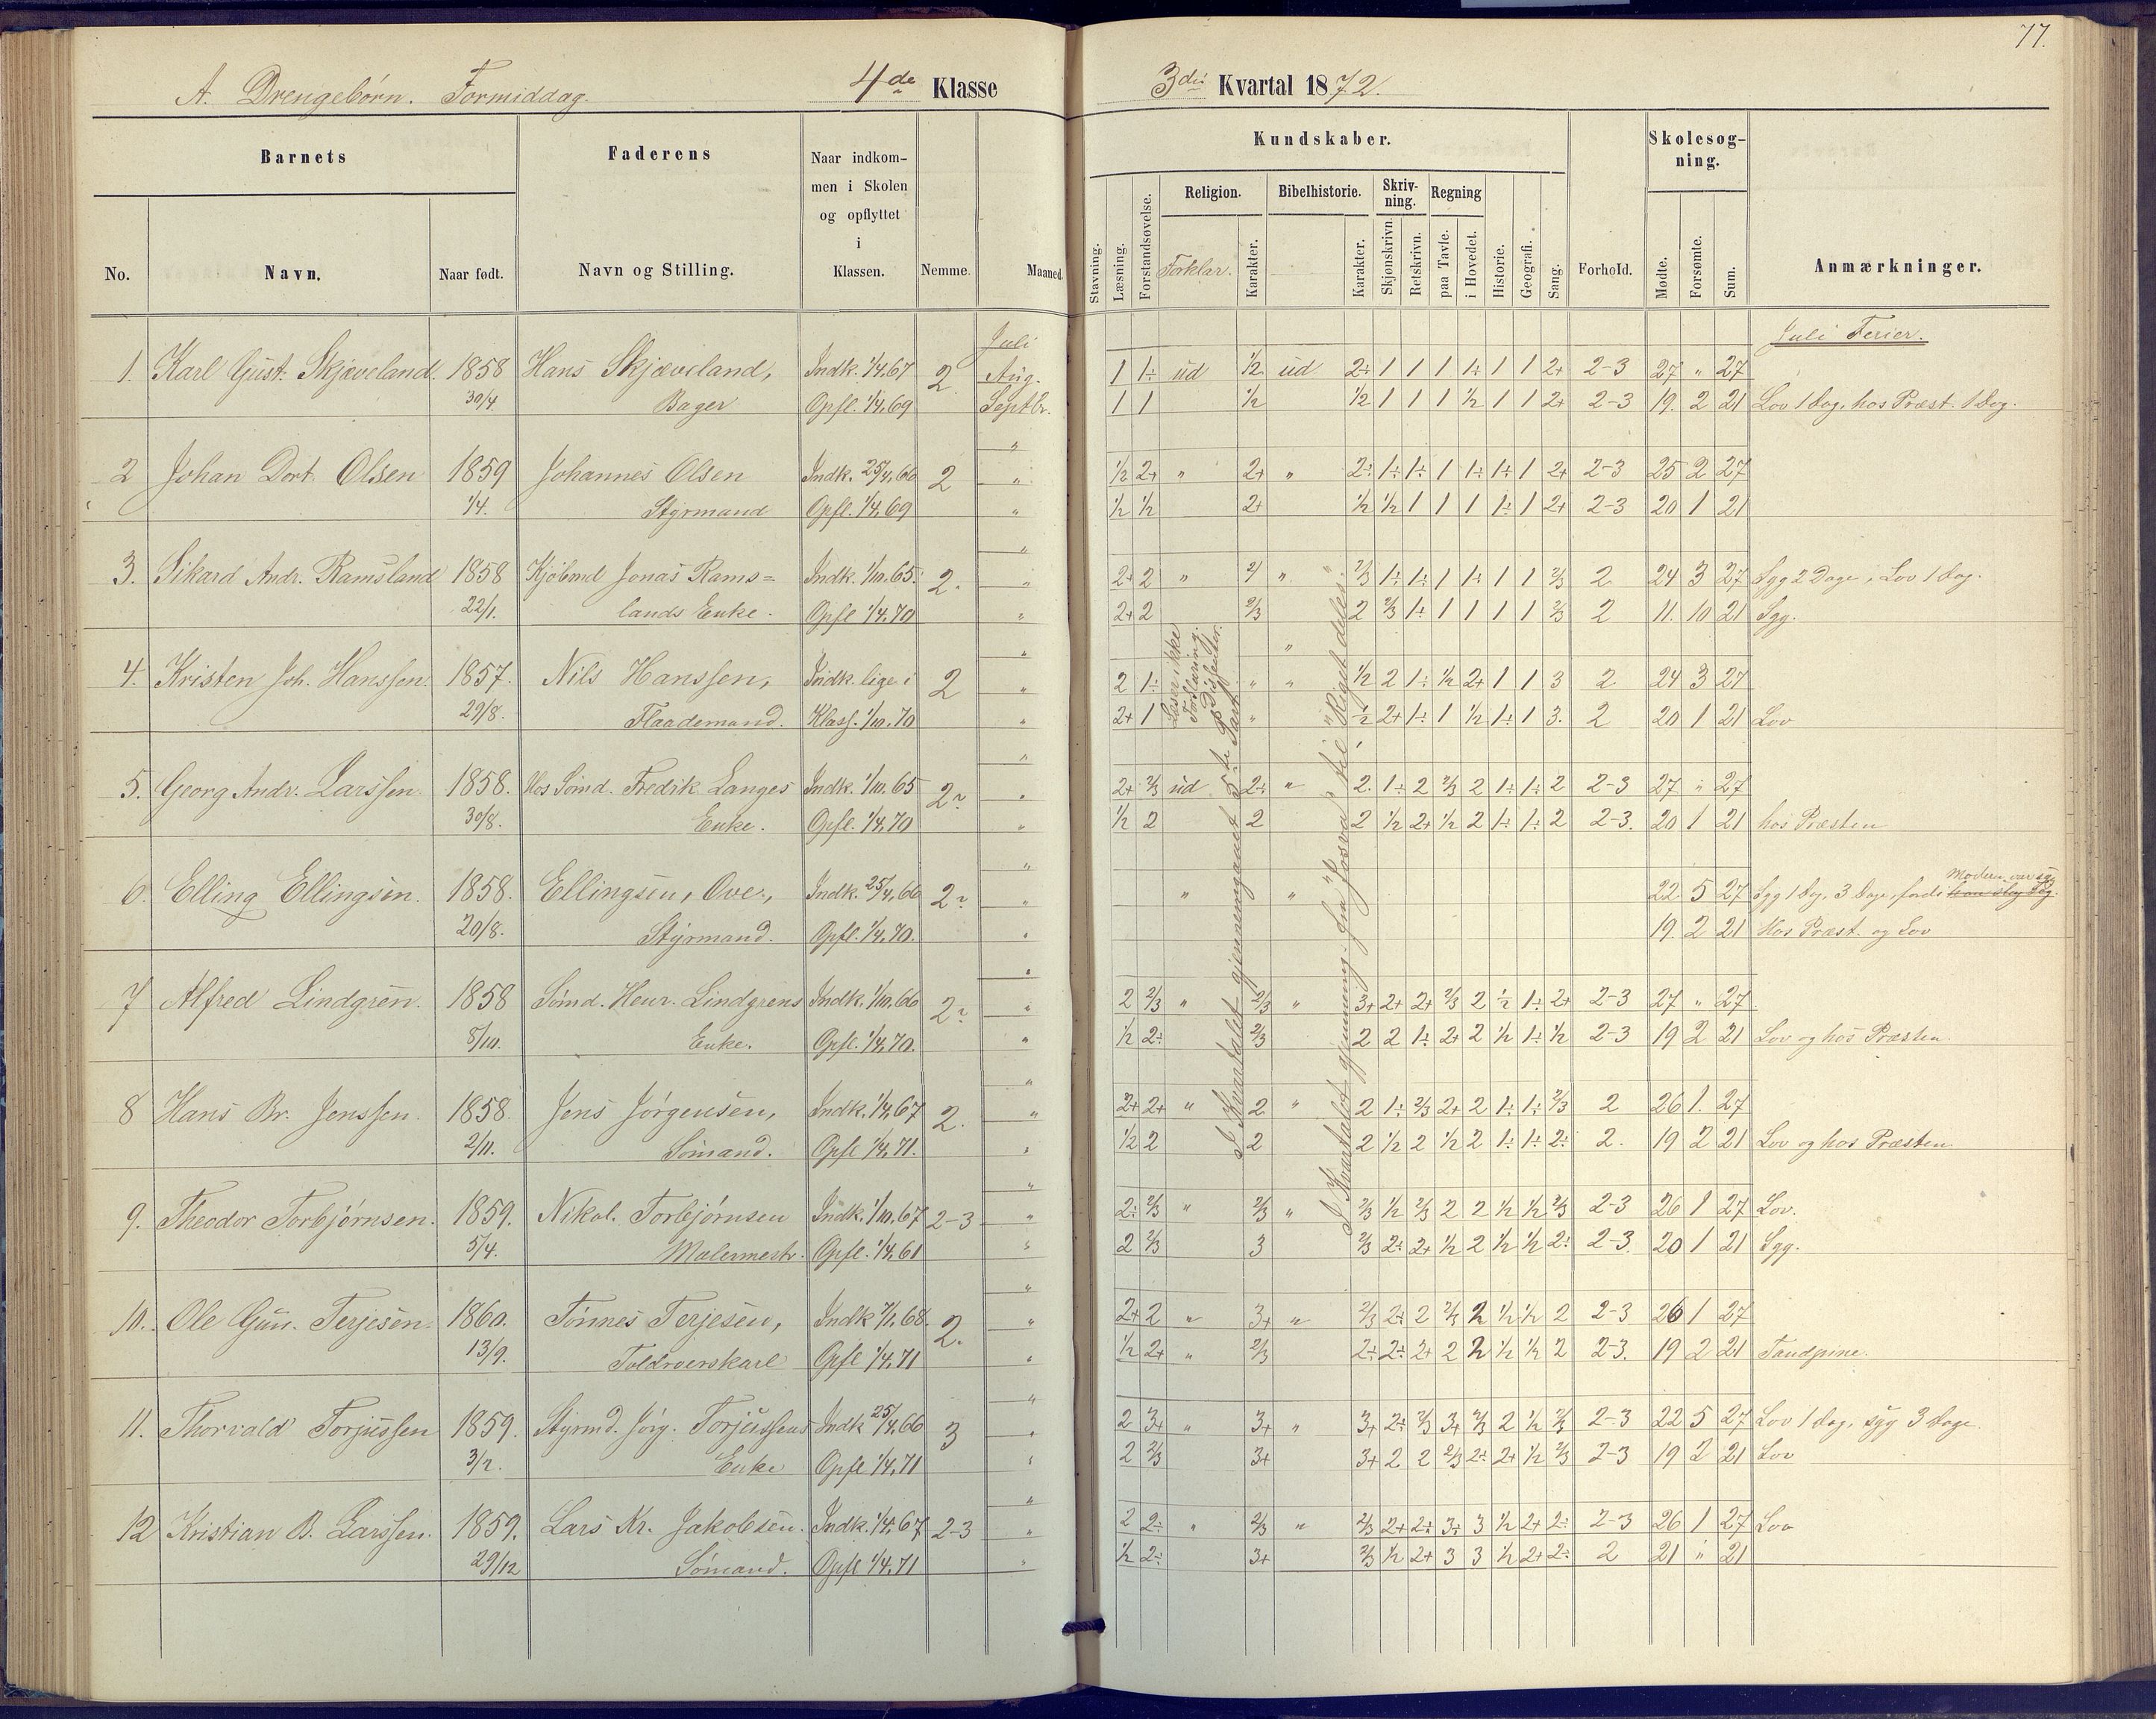 77.
A. Drengebörn. Formiddag. 4de Klasse 3die Kvartal 1872.
Barnets Faderens Naar indkommen i Skolen og opflyttet i Klassen. Nemme. Maaned. Kundskaber. Forhold. Skolesøgning. Anmærkninger.
No. Navn. Naar født. Navn og Stilling.
Stavning. Læsning. Forstandsøvelse. Religion. Forklar. Karakter. Bibelhistorie. Karakter. Skrivning. Skjønskrivn. Retskrivn. Regning paa Tavle. i Hovedet. Historie. Geografi. Sang. Mødte. Forsømte. Sum.
Juli Juli Ferier.
1. Karl Gust. Skjæveland. 1858 Hans Skjæveland, Indk. 1/4.67 2 Aug. 1 1÷ ud 1/2 ud 2÷ 1 1 1 1÷ 1 1 2+ 2-3 27 " 27
30/4. Bager Opfl. 1/4.69 Septbr. 1 1 1/2 1/2 1 1 1 1/2 1 1 2+ 2-3 19. 2 21 Lov 1 Dag, hos Præst. 1 Dag.
"
2 Johan Dort. Olsen 1859 Johannes Olsen Indk. 25/4.66 2 " 1/2 2+ " 2+ " 2÷ 1÷ 1÷ 1 1÷ 1÷ 1 2+ 2-3 25 2 27
1/4. Styrmand Opfl. 1/4.69 " 1/2 1/2 2+ 1/2 1/2 1 1 1 1÷ 1 2+ 2-3 20 1 21
"
3. Sikard Andr. Ramsland 1858 Kjöbmd Jonas Rams= Indk. 1/10.65 2. " 2+ 2 " 2/ " 2/3 1÷ 1÷ 1 1÷ 1 1 2/3 2 24 3 27 Syg 2 Dage, Lov 1 Dag.
22/1. lands Enke. Opfl 1/4.70 " 2+ 2 2/3 2 2/3 1÷ 1 1 1 1 2/3 2 11. 10 21 Syg.
" "
4. Kristen Joh. Hanssen. 1857. Nils Hanssen, Indk. lige i 2 " 2 1÷ " " 1/2 2 1÷ 1/2 2+ 1 1 3 2 24 3 27
29/8. Flaademand. Klass. 1/10.70 " 2+ 1 " 1/2 2+ 1÷ 1 1/2 1÷ 1 3. 2 20 1 21 Lov
Læser ikke Forklaring. Dissenter.
"
5. Georg Andr. Larssen 1858. Hos Sömd. Fredik Langes Indk. 1/10.65 2? " 2+ 2/3 ud 2÷ " 2. 1÷ 2 2/3 2 1÷ 1÷ 2 2-3 27 " 27
30/8. Enke. Opfl. 1/4.70 " 1/2 2 2 2 1/2 2+ 1/2 2 1÷ 1÷ 2 2-3. 20 1 21 hos Præsten
"
6. Elling Ellingsen. 1858. Ellingsen, Ove, Indk. 25/4.66 2? " " " 22 5 27 Syg 1 Dag, 3 Dage, fordi Modern var syg
20/8. Styrmand. Opfl. 1/4.70. " 19. 2 21 Hos Præst. og Lov
"
7 Alfred Lindgren. 1858 Sömd. Henr. Lindgrens Indk. 1/10.66 2? " 2 2/3 " 2/3 " 3+ 2+ 2+ 2/3 2 1/2 1÷ 2+ 2-3 27 " 27
8/10. Enke. Opfl. 1/4.70. " 1/2 2÷ 2/3 2 2 1÷ 2+ 2 1/2 1÷ 1/2 2-3 19 2 21 Lov og hos Præsten.
"
8 Hans Br. Jenssen. 1858. Jens Jörgensen, Indk. 1/4.67 2. " 2+ 2+ " 2 " 2 1÷ 2/3 2+ 2 1÷ 1÷ 2/3 2 26 1. 27
2/11. Sömand. Opfl 1/4.71. " 1/2 2 2 2 1/2 2 1/2 2 1÷ 1÷ 2÷ 2. 19 2 21 Lov og hos Præsten
"
9. Theodor Torbjörnsen. 1859. Nikol. Torbjörnsen Indk. 1/10.67 2-3 " 2÷ 2/3 " 2/3 " 2/3 1/2 2/3 2 2 1/2 1/2 2/3 2-3 26 1 27 Lov.
5/4. Malermestr. Opfl. 1/4.61 " 2 2/3 3 2/3 2÷ 2+ 1/2 2 1/2 1/2 2÷ 2-3. 20 1 21 Syg.
"
10. Ole Gun. Terjesen. 1860. Tönnes Terjesen, Indk 7/1.68. 2. " 2+ 2 " 3+ " 2/3 2÷ 2 2/3 2 1/2 1/2 2 2-3 26 1 27
13/9. Toldroerskarl Opfl 1/4.71 " 1/2 2+ " 2/3 2÷ 2÷ 2+ 2 2 1/2 1/2 2 2-3. 19 2 21 Tandpine.
"
11. Thorvald Torjussen 1859. Styrmd. Jörg. Torjussens Indk 25/4.66 3 " 2 3+ " 3+ " 3+ 2÷ 2/3 3+ 2/3 2 1/2 2/3 2-3 22 5 27 Lov 1 Dag, syg 3 Dage
3/2. Enke Opfl 1/4.71 " 2 2/3 3+ 3+ 2 2 2/3 2÷ 2+ 1/2 2/3 2-3 19 2 21 Lov
"
12 Kristian B. Larssen. 1859. Lars Kr. Jakobsen. Indk. 1/4.67 2-3 " 2 2÷ " 2/3 " 2/3 2+ 2÷ 3÷ 3 1/2 2+ 2÷ 2-3 26 1 27 Lov
29/12 Sömand. Opfl 1/4.71 " 1/2 2÷ 3+ 2/3 1/2 2+ 3 3 1/2 2+ 2÷ 2 21 " 21
I Kvartalet gjennemgaaet 5te Part
I Kvartalet gjennemg. fra "Josva" til "Riget deles."